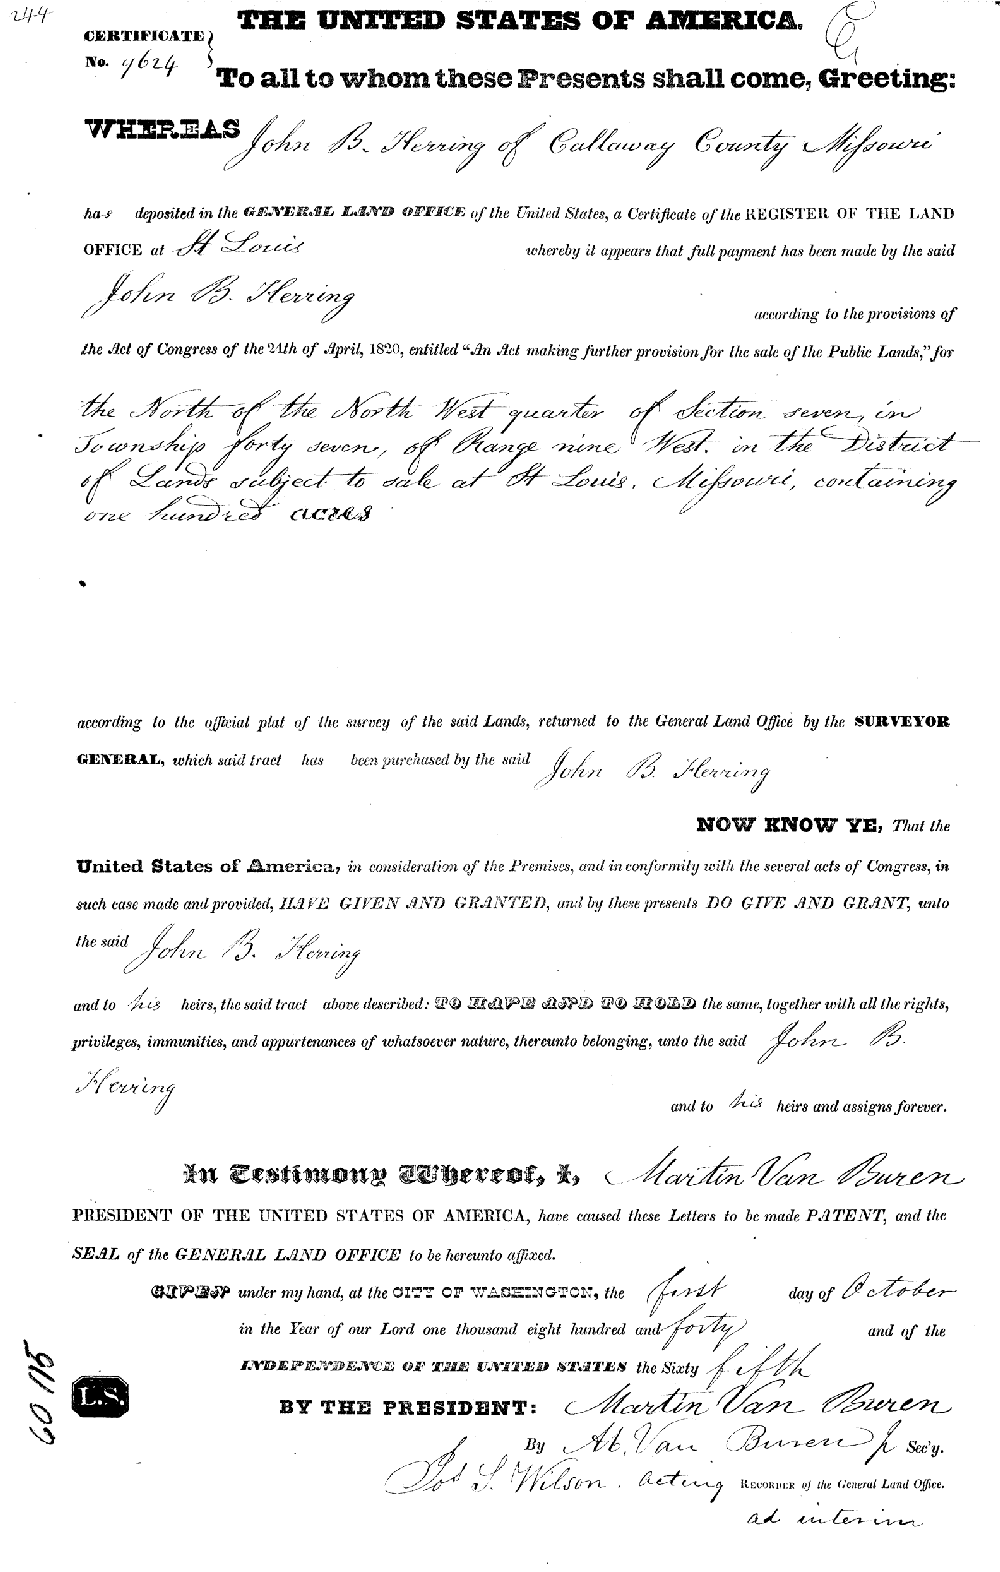 244
THE UNITED STATES OF AMERICA.
CERTIFICATE
No. 9624
To all to whom these Presents shall come, Greeting:
WHEREAS John B. Herring of Callaway County Missouri
has deposited in the GENERAL LAND OFFICE of the United States, a Certificate of the REGISTER OF THE LAND
OFFICE at St Louis whereby it appears that full payment has been made by the said
John B. Herring
according to the provisions of
the Act of Congress of the 24th of April, 1820, entitled "An Act making further provision for the sale of the Public Lands," for
the North of the North West quarter of Section seven, in
Township forty seven, of Range nine West. in the District
of Lands subject to sale at St Louis, Missouri, containing
one hundred acres
according to the official plat of the survey of the said Lands, returned to the General Land Office by the SURVEYOR
GENERAL, which said tract has been purchased by the said John B. Herring
NOW KNOW YE, That the
United States of America, in consideration of the Premises, and in conformity with the several acts of Congress, in
such case made and provided, HAVE GIVEN AND GRANTED, and by these presents DO GIVE AND GRANT, unto
the said John B. Herring
and to his heirs, the said tract above described: TO HAVE AND TO HOLD the same, together with all the rights,
privileges, immunities, and appurtenances of whatsoever nature, thereunto belonging, unto the said John B.
Herring
and to his heirs and assigns forever.
In Testimony Whereof, I, Martin Van Buren
PRESIDENT OF THE UNITED STATES OF AMERICA, have caused these Letters to be made PATENT, and the
SEAL of the GENERAL LAND OFFICE to be hereunto affixed.
GIVEN under my hand, at the CITY OF WASHINGTON, the first day of October
in the Year of our Lord one thousand eight hundred and forty and of the
INDEPENDENCE OF THE UNITED STATES the Sixty fifth
60 115
L.S.
BY THE PRESIDENT: Martin Van Buren
By Ab. Van Buren Jr Sec'y.
Jos S. Wilson. acting RECORDER of the General Land Office.
ad interim